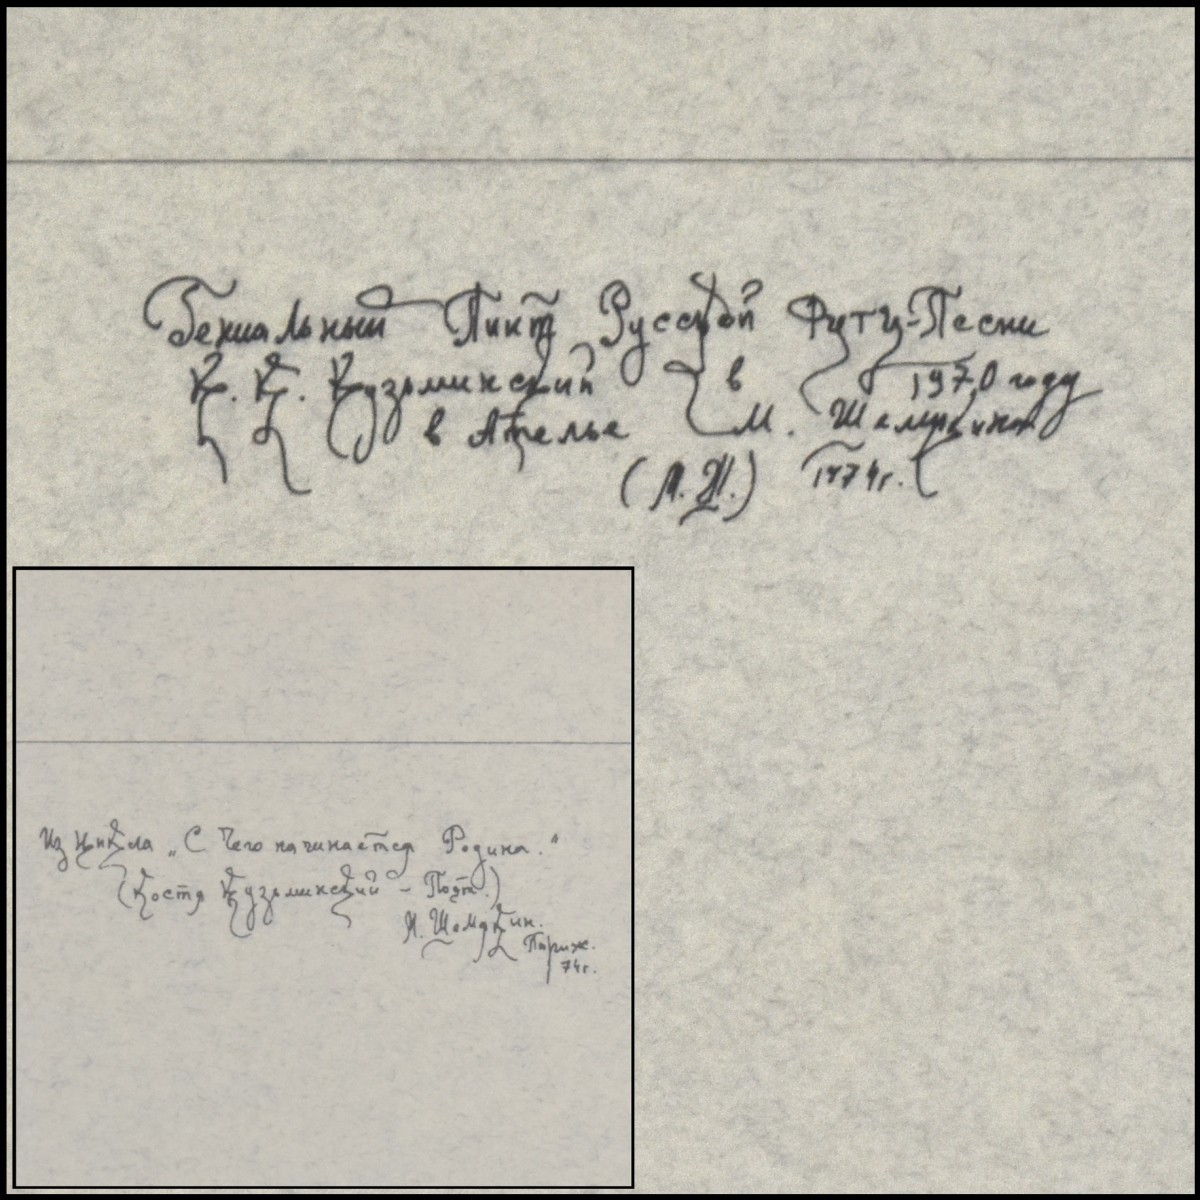 Гениальный Пиит Русской Футу-Песни
К. К. Кузьминский в 1970 году
в Ателье М. Шемякина
(М.Ш.) 1974г.
Из Цикла „С Чего начинается Родина."
(Костя Кузьминский - Поэт.)
М. Шемякин.
Париж.
74г.